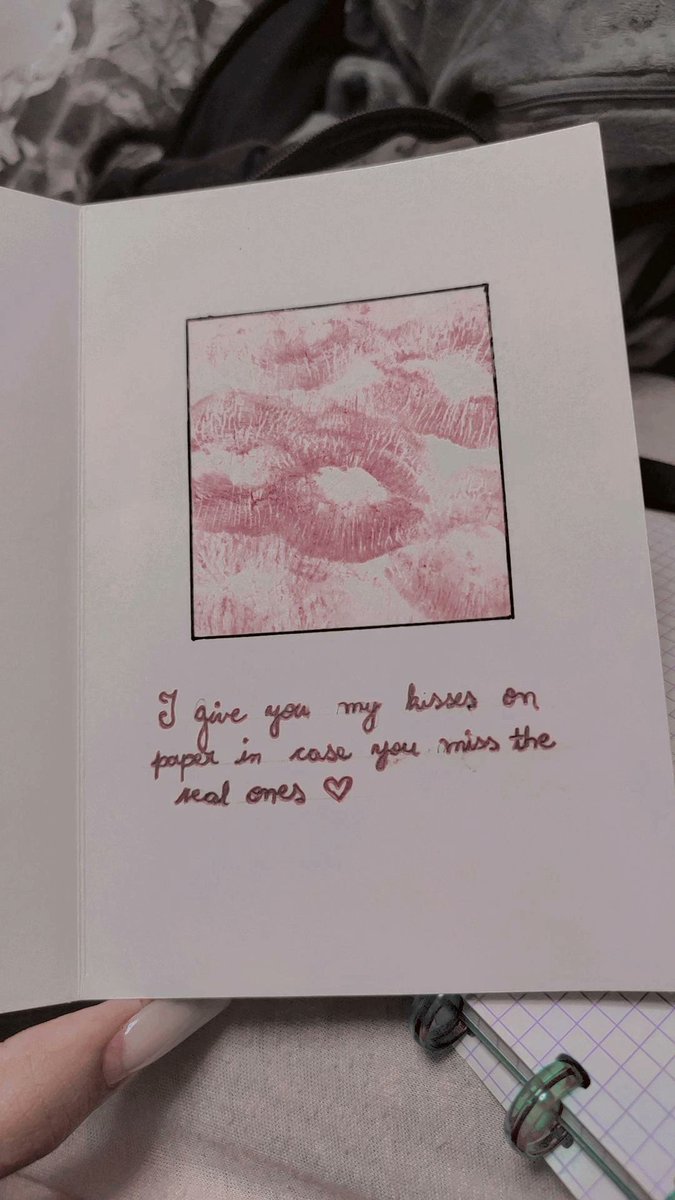 I give you my kisses on
paper in case you miss the
real ones ♡